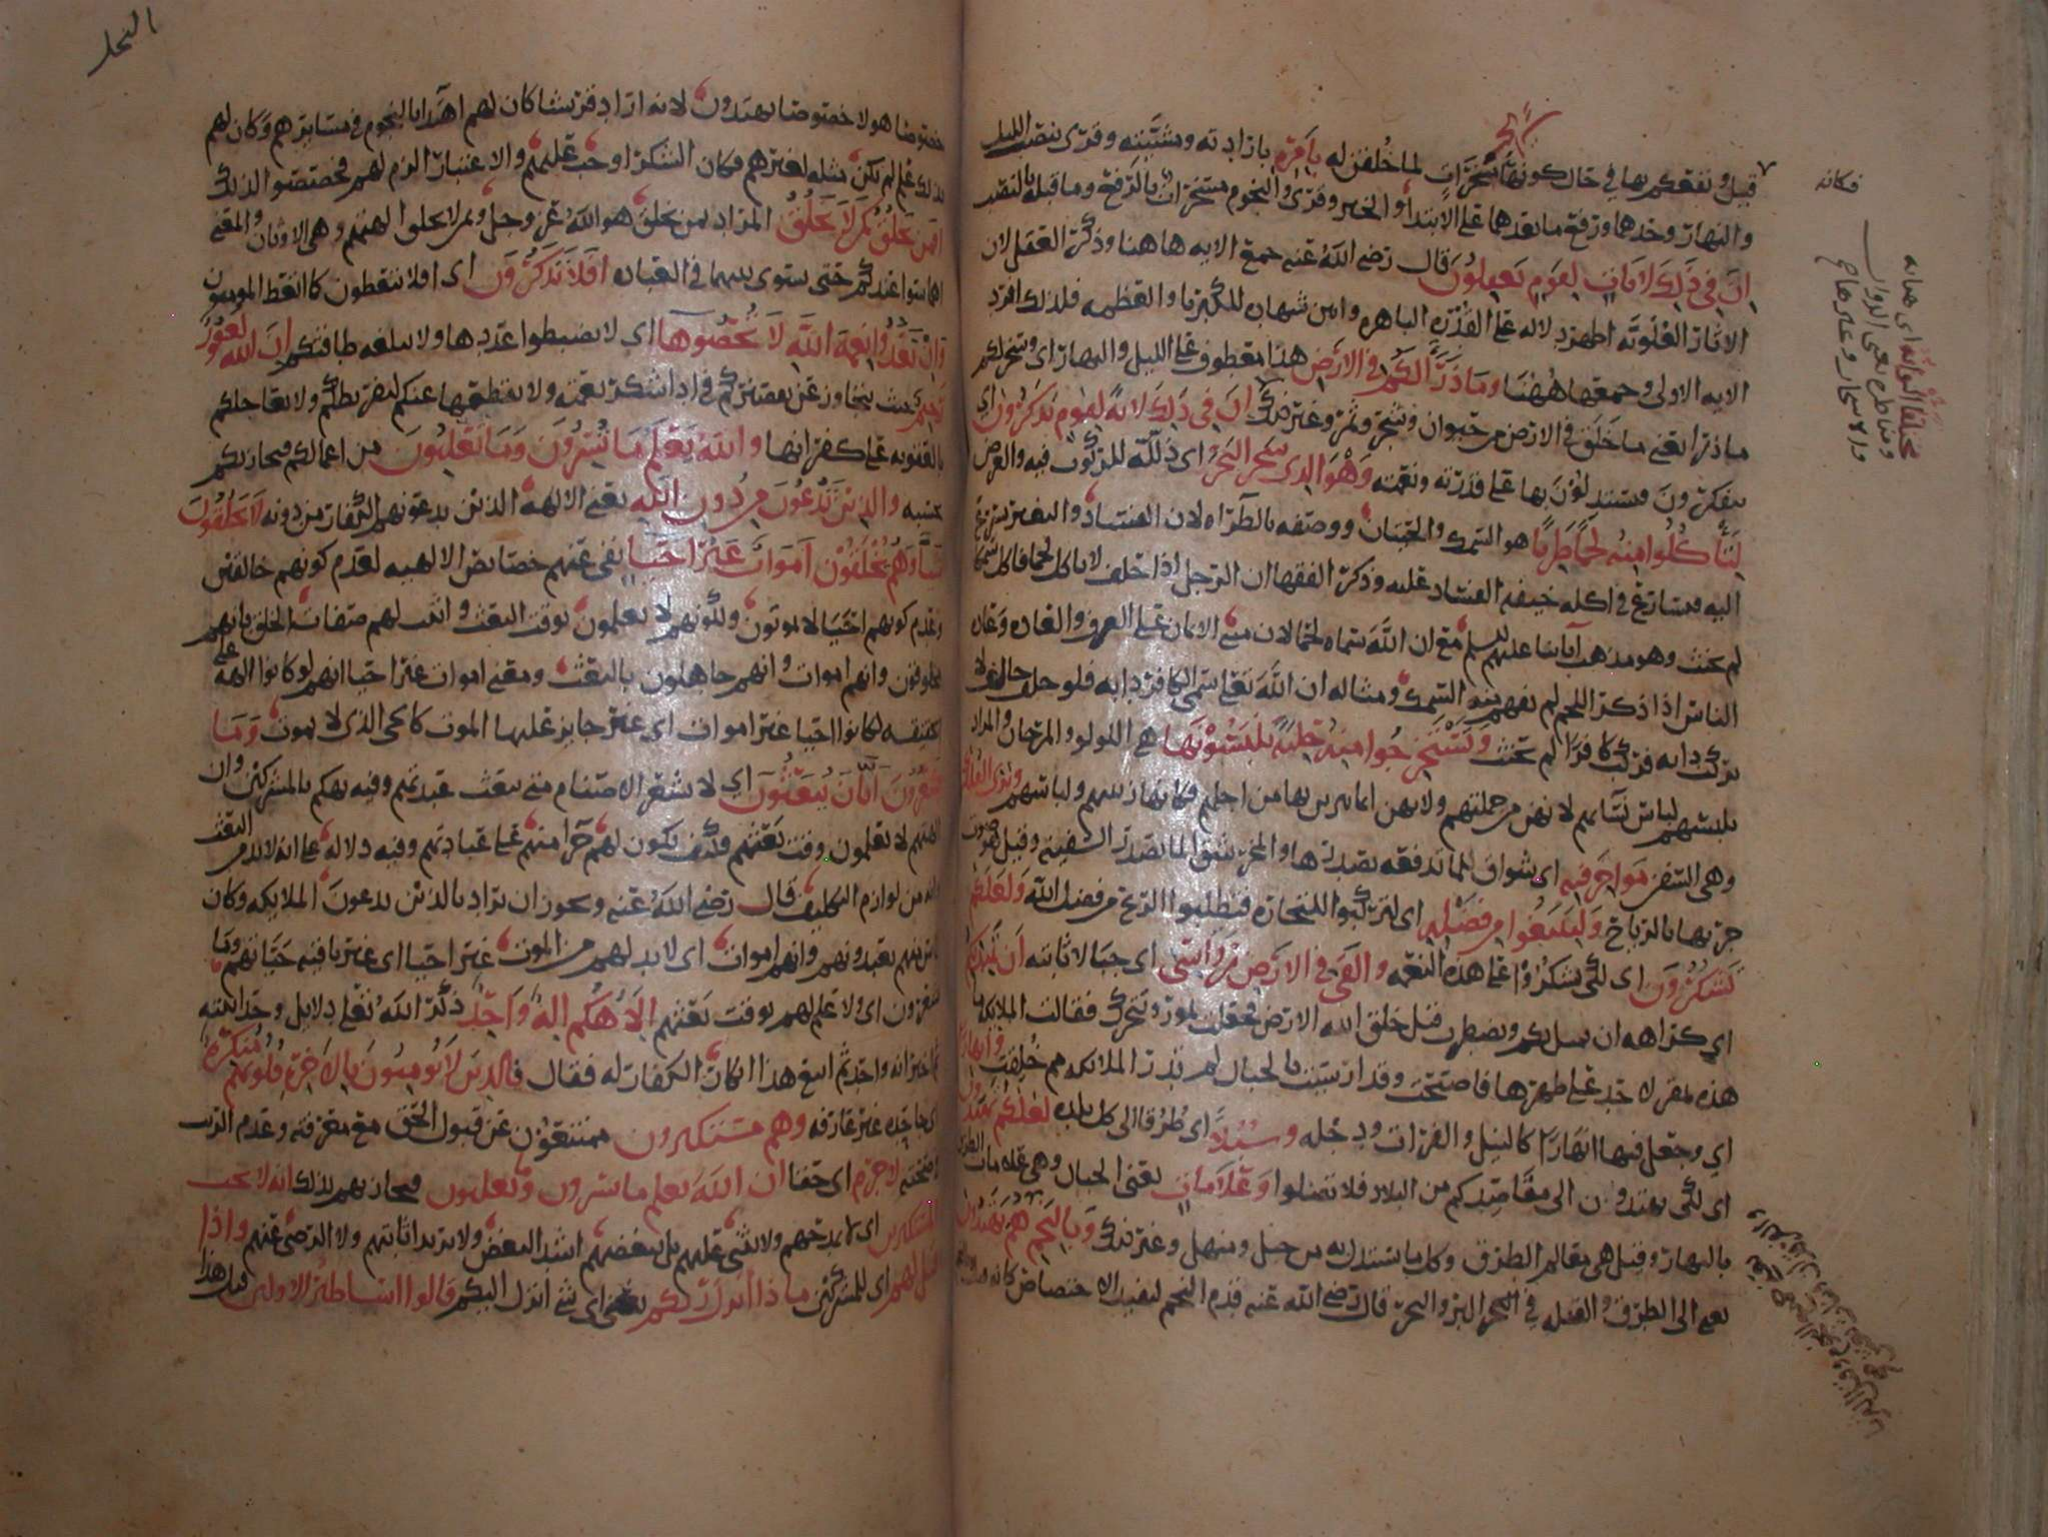 قيل ونفعكم بها في حال كونها مسخرات لما خلقن له بامره بارادته ومشيئته وقرئ بنصب الليل
والنهار وحدهما ورفع ما بعدهما على الابتداء والخبر وقرئ والنجوم مسخرات بالرفع وما قبله بالنصب
ان في ذلك لايات لقوم يعقلون قال رضي الله عنه جمع الايه هاهنا وذكر العقل لان
الاثار العلويه اظهر دلاله على القدره الباهره وابين شهاده للكبريا والعظمه فلذلك افرد
الايه الاولى وجمعها ههنا وما ذرا لكم في الارض هذا معطوف على الليل والنهار اي وسخر لكم
ما ذرا يعني ما خلق في الارض من حيوان وشجر وثمر وغير ذلك ان في ذلك لايه لقوم يذكرون اي
يتفكرون ويستدلون بها على قدرته ونعمته وهو الذي سخر البحر اي ذلله للركوب فيه والغوص
لتاكلوا منه لحما طريا هو السمك والحيتان ووصفه بالطراه لان الفساد والتغير يسرع
اليه فيسارع في اكله خيفه الفساد عليه وذكر الفقها ان الرجل اذا حلف لا ياكل لحما فاكل سمكا
لم يحنث وهو مذهب ابائنا عليهم السلم مع ان الله سماه لحما لان مبنى الايمان على العرف والعاده وعاده
الناس اذا ذكر اللحم لم يفهم منه السمك ومثاله ان الله تعلى سمى الكافر دابه فلو حلف حالف لا
يركب دابه فركب كافرا لم يحنث وتستخرجوا منه حليه تلبسونها هي اللولو والمرجان والمراد
بلبسهم لباس نسائهم لانهن من جملتهم ولانهن انما يتزين بها من اجلهم فكانها زينتهم ولباسهم وترى الفلك
وهي السفن مواخر فيه اي شواق للما تدفعه بصدرها والمخر شق الما بصدر السفينه وقيل هو صوت
جريها بالرياح ولتبتغوا من فضله اي لتركبوا للتجاره فتطلبوا الربح من فضل الله ولعلكم
تشكرون اي لكي تشكروا على هذه النعمه والقى في الارض رواسي اي جبالا ثابته ان تميد بكم
اي كراهه ان تميل بكم وتضطرب قيل خلق الله الارض فجعلت تمور وتتحرك فقالت الملائكه ما
هذه بمقر لاحد على ظهرها فاصبحت وقد ارسيت بالجبال لم تدر الملائكه مم خلقت وانهارا
اي وجعل فيها انهارا كالنيل والفرات ودجله وسبلا اي طرقا الى كل بلده لعلكم تهتدون
اي لكي تهتدون الى مقاصدكم من البلاد فلا تضلوا وعلامات يعني الجبال وهي علامات الطرق
بالنهار وقيل هي معالم الطرق وكل ما يستدل به من جبل وسهل وغير ذلك وبالنجم هم يهتدون
يعني الى الطرق والقبله في البر والبحر قال رضي الله عنه قدم النجم ليفيد الاختصاص كانه قال
فكانه
مختلفا الوانه اي هياته
ومناظره يعني الدواب
والاشجار وغيرهما
النحل
خصوصا هولا خصوصا يهتدون لانه اراد قريشا كان لهم اهتدا بالنجوم في مسايرهم وكان لهم
بذلك علم لم يكن مثله لغيرهم فكان الشكر اوجب عليهم والاعتبار الزم لهم فخصصوا لذلك
افمن يخلق كمن لا يخلق المراد بمن يخلق هو الله عز وجل وبمن لا يخلق الهتهم وهي الاوثان والمعنى
اهما سوا عندكم حتى يستوى بينهما في العباده افلا تذكرون اي افلا تتعظون كما اتعظ المومنون
وان تعدوا نعمه الله لا تحصوها اي لا تضبطوا عددها ولا تبلغه طاقتكم ان الله لغفور
رحيم حيث يتجاوز عن تقصيركم في ادا شكر نعمته ولا يقطعها عنكم لتفريطكم ولا يعاجلكم
بالعقوبه على كفرانها والله يعلم ما تسرون وما تعلنون من اعمالكم فيجازيكم
بحسبه والذين تدعون من دون الله يعني الالهه الذين يدعونهم الكفار من دونه لا يخلقون
شيا وهم يخلقون اموات غير احيا نفى عنهم خصائص الالهيه لعدم كونهم خالقين
وعدم كونهم احيا لا يموتون وكونهم لا يعلمون بوقت البعث واثبت لهم صفات الخلق بانهم
مخلوقون وانهم اموات وانهم جاهلون بالبعث ومعنى اموات غير احيا انهم لو كانوا الهه على
الحقيقه لكانوا احيا غير اموات اي غير جايز عليها الموت كالحي الذي لا يموت وما
يشعرون ايان يبعثون اي لا تشعر الاصنام متى تبعث عبدتهم وفيه تهكم بالمشركين وان
الهتهم لا تعلمون وقت بعثهم فكيف يكون لهم جزا منهم على عبادتهم وفيه دلاله على انه لا بد من البعث
وانه من لوازم التكليف قال رضي الله عنه ويجوز ان يراد بالذين يدعون الملائكه وكان
ناس منهم يعبدونهم وانهم اموات اي لا بد لهم من الموت غير احيا اي غير باقيه حياتهم وما
يشعرون اي ولا علم لهم بوقت بعثهم الاهكم اله واحد ذكر الله تعلى دلايل وحدانيته
ثم اخبر انه واحد ثم اتبع هذا انكار الكفار له فقال فالذين لا يومنون بالاخره قلوبهم منكره
اي جاحده غير عارفه وهم مستكبرون ممتنعون عن قبول الحق مع معرفته وعدم الريب
في صحته لا جرم اي حقا ان الله يعلم ما يسرون وما يعلنون فيجازيهم بذلك انه لا يحب
المستكبرين اي لا يمدحهم ولا يثني عليهم بل يبغضهم اشد البغض ولا يريد اثابتهم ولا الترضي عنهم واذا
قيل لهم اي للمشركين ماذا انزل ربكم يعني اي شي انزل اليكم قالوا اساطير الاولين قيل هذا